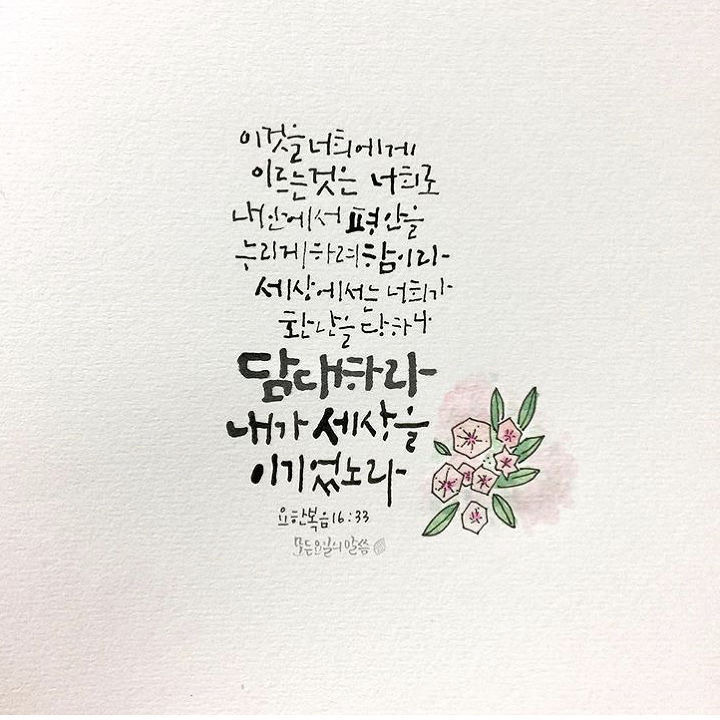 이것을 너희에게
이르는것은 너희로
내안에서 평안을
누리게하려함이라
세상에서는 너희가
환난을 당하나
담대하라
내가 세상을
이기었노라
요한복음16:33
모든요일의말씀